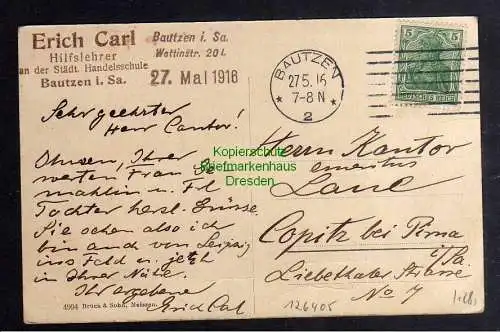 Erich Carl
Hilfslehrer
an der Städt. Handelsschule
Bautzen i. Sa.
Bautzen i. Sa.
Wettinstr. 20 I.
27. Mai 1916
BAUTZEN
27.5.16
7-8 N
* 2 *
5 5
DEUTSCHES REICH
Sehr geehrter
Herr Cantor!
Ihnen, Ihrer
werten Frau Ge-
mahlin u. Frl
Tochter herzl. Grüsse.
Sie sehen also ich
bin auch von Leipzig
ins Feld u. jetzt
in Ihrer Nähe.
Ihr ergebener
Erich Carl
Herrn Kantor
emeritus
Copitz bei Pirna
i/Sa.
Liebethaler Strasse
No 7
Kopierschutz
Briefmarkenhaus
Dresden
4904 Druck & Sohn, Meissen.
126405